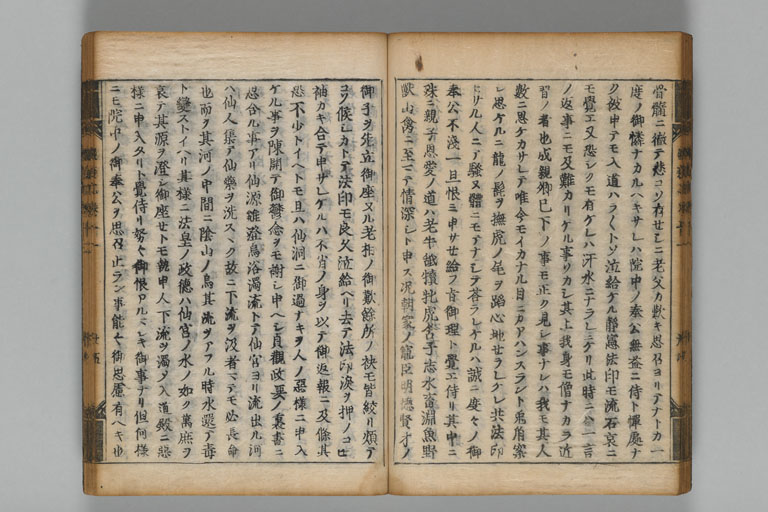 骨髄ニ徹テ悲コソ有セシニ老父カ歎キ思召ヨリテナトカ一
度ノ御憐ナカルヘキサレハ院中ノ奉公無益ニ侍ト憚處ナ
ク被申テモ入道ハラ〱トソ泣給ケル静憲法印モ流石哀ニ
モ覺エ又恐シクモ有ケレハ汗水ニナラレニケリ此時ニハ一言
ノ返事ニモ及難カリケル事ソカシ其上我身モ僧ナカラ近
習ノ者也成親卿已下ノ事モ正ク見シ事ナレハ我モ其人
數ニ思ケカサレテ唯今モイカナル目ニカアハンスラント兎角案
シ思ケルニ龍ノ髭ヲ撫虎ノ尾ヲ踏心地セラレケレ共法印
トサル人ニテ騒ヌ體ニモテナシテ答ラレケルハ誠ニ度々ノ御
奉公不淺一旦恨ミ申サセ給フ旨御理ト覺エ侍リ其中ニ
殊ニ親子恩愛ノ道ハ老牛舐犢乳虎含子志水畜淵魚野
獣山禽ニ至マテ情深シト申ス况朝家ノ寵臣明德賢才ノ
御子ヲ先立御座ヌル老相ノ御歎餘所ノ袂モ皆絞リ煩テ
コソ候シカトテ法印モ良久泣給ヘリ去テ法印淚ヲ押ノコヒ
袖カキ合テ申サレケルハ不肖ノ身ヲ以テ御返報ニ及條其
恐不少トイヘトモ且ハ仙洞ニ御過ナキヲ人ノ惡様ニ申入
ケル事ヲ陳開テ御鬱念ヲモ謝シ申ヘシ貞觀政要ノ裏書ニ
思合ル事アリ仙源雖澄烏浴濁流トテ仙官ヨリ流出ル河
ハ仙人集テ仙藥ヲ洗スヽク故ニ下流ヲ汲者マテモ必長命
也而ヲ其河ノ中間ニ陰山ノ烏其流ヲアフル時水還テ毒
ト變ストイヘリ其様ニ法皇ノ政德ハ仙宮ノ水ノ如ク萬庶ヲ
哀テ其源ヲ澄シ御座セトモ執申人下流ヲ濁シ入道殿ニ惡
様ニ申入タリト覺侍リ努々御恨アルマシキ御事ナリ但何様
ニモ院中ノ御奉公ヲ思召止ラン事能々御思慮有ヘキ也